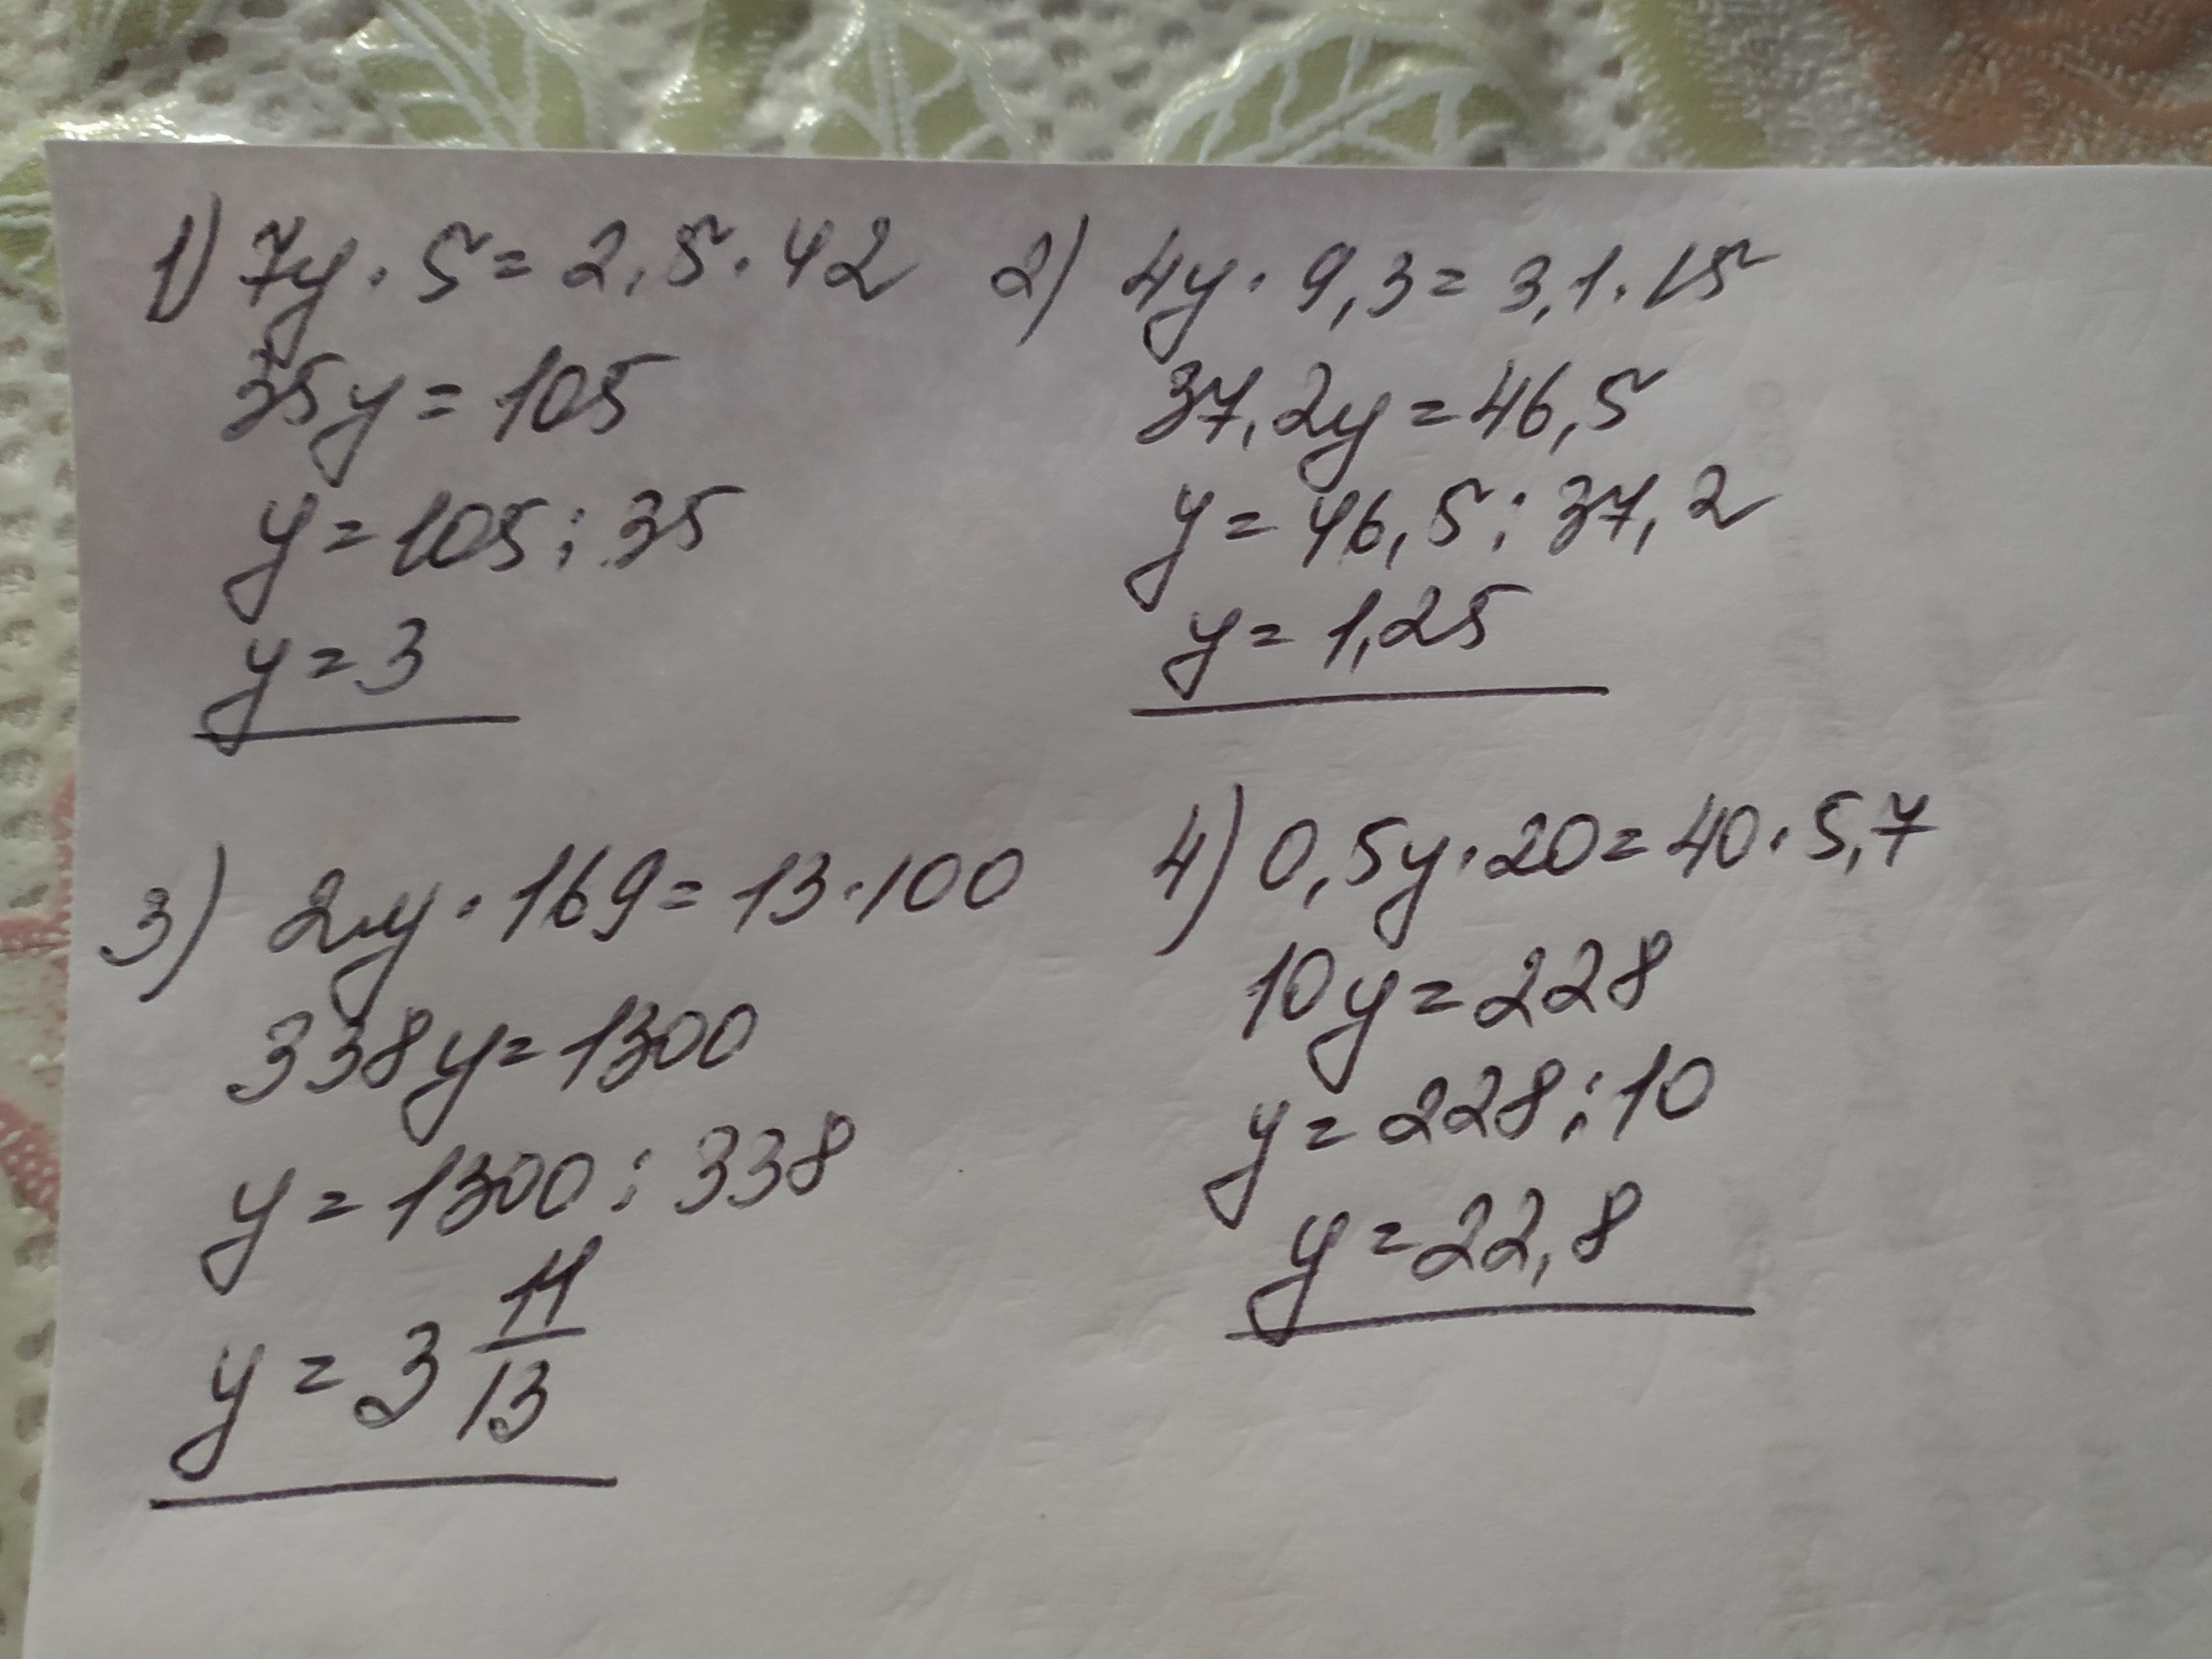 1) 7y · 5 = 2,5 · 42
35y = 105
y = 105 : 35
y = 3
2) 4y · 9,3 = 3,1 · 15
37,2y = 46,5
y = 46,5 : 37,2
y = 1,25
3) 2y · 169 = 13 · 100
338y = 1300
y = 1300 : 338
y = 3 11/13
4) 0,5y · 20 = 40 · 5,7
10y = 228
y = 228 : 10
y = 22,8